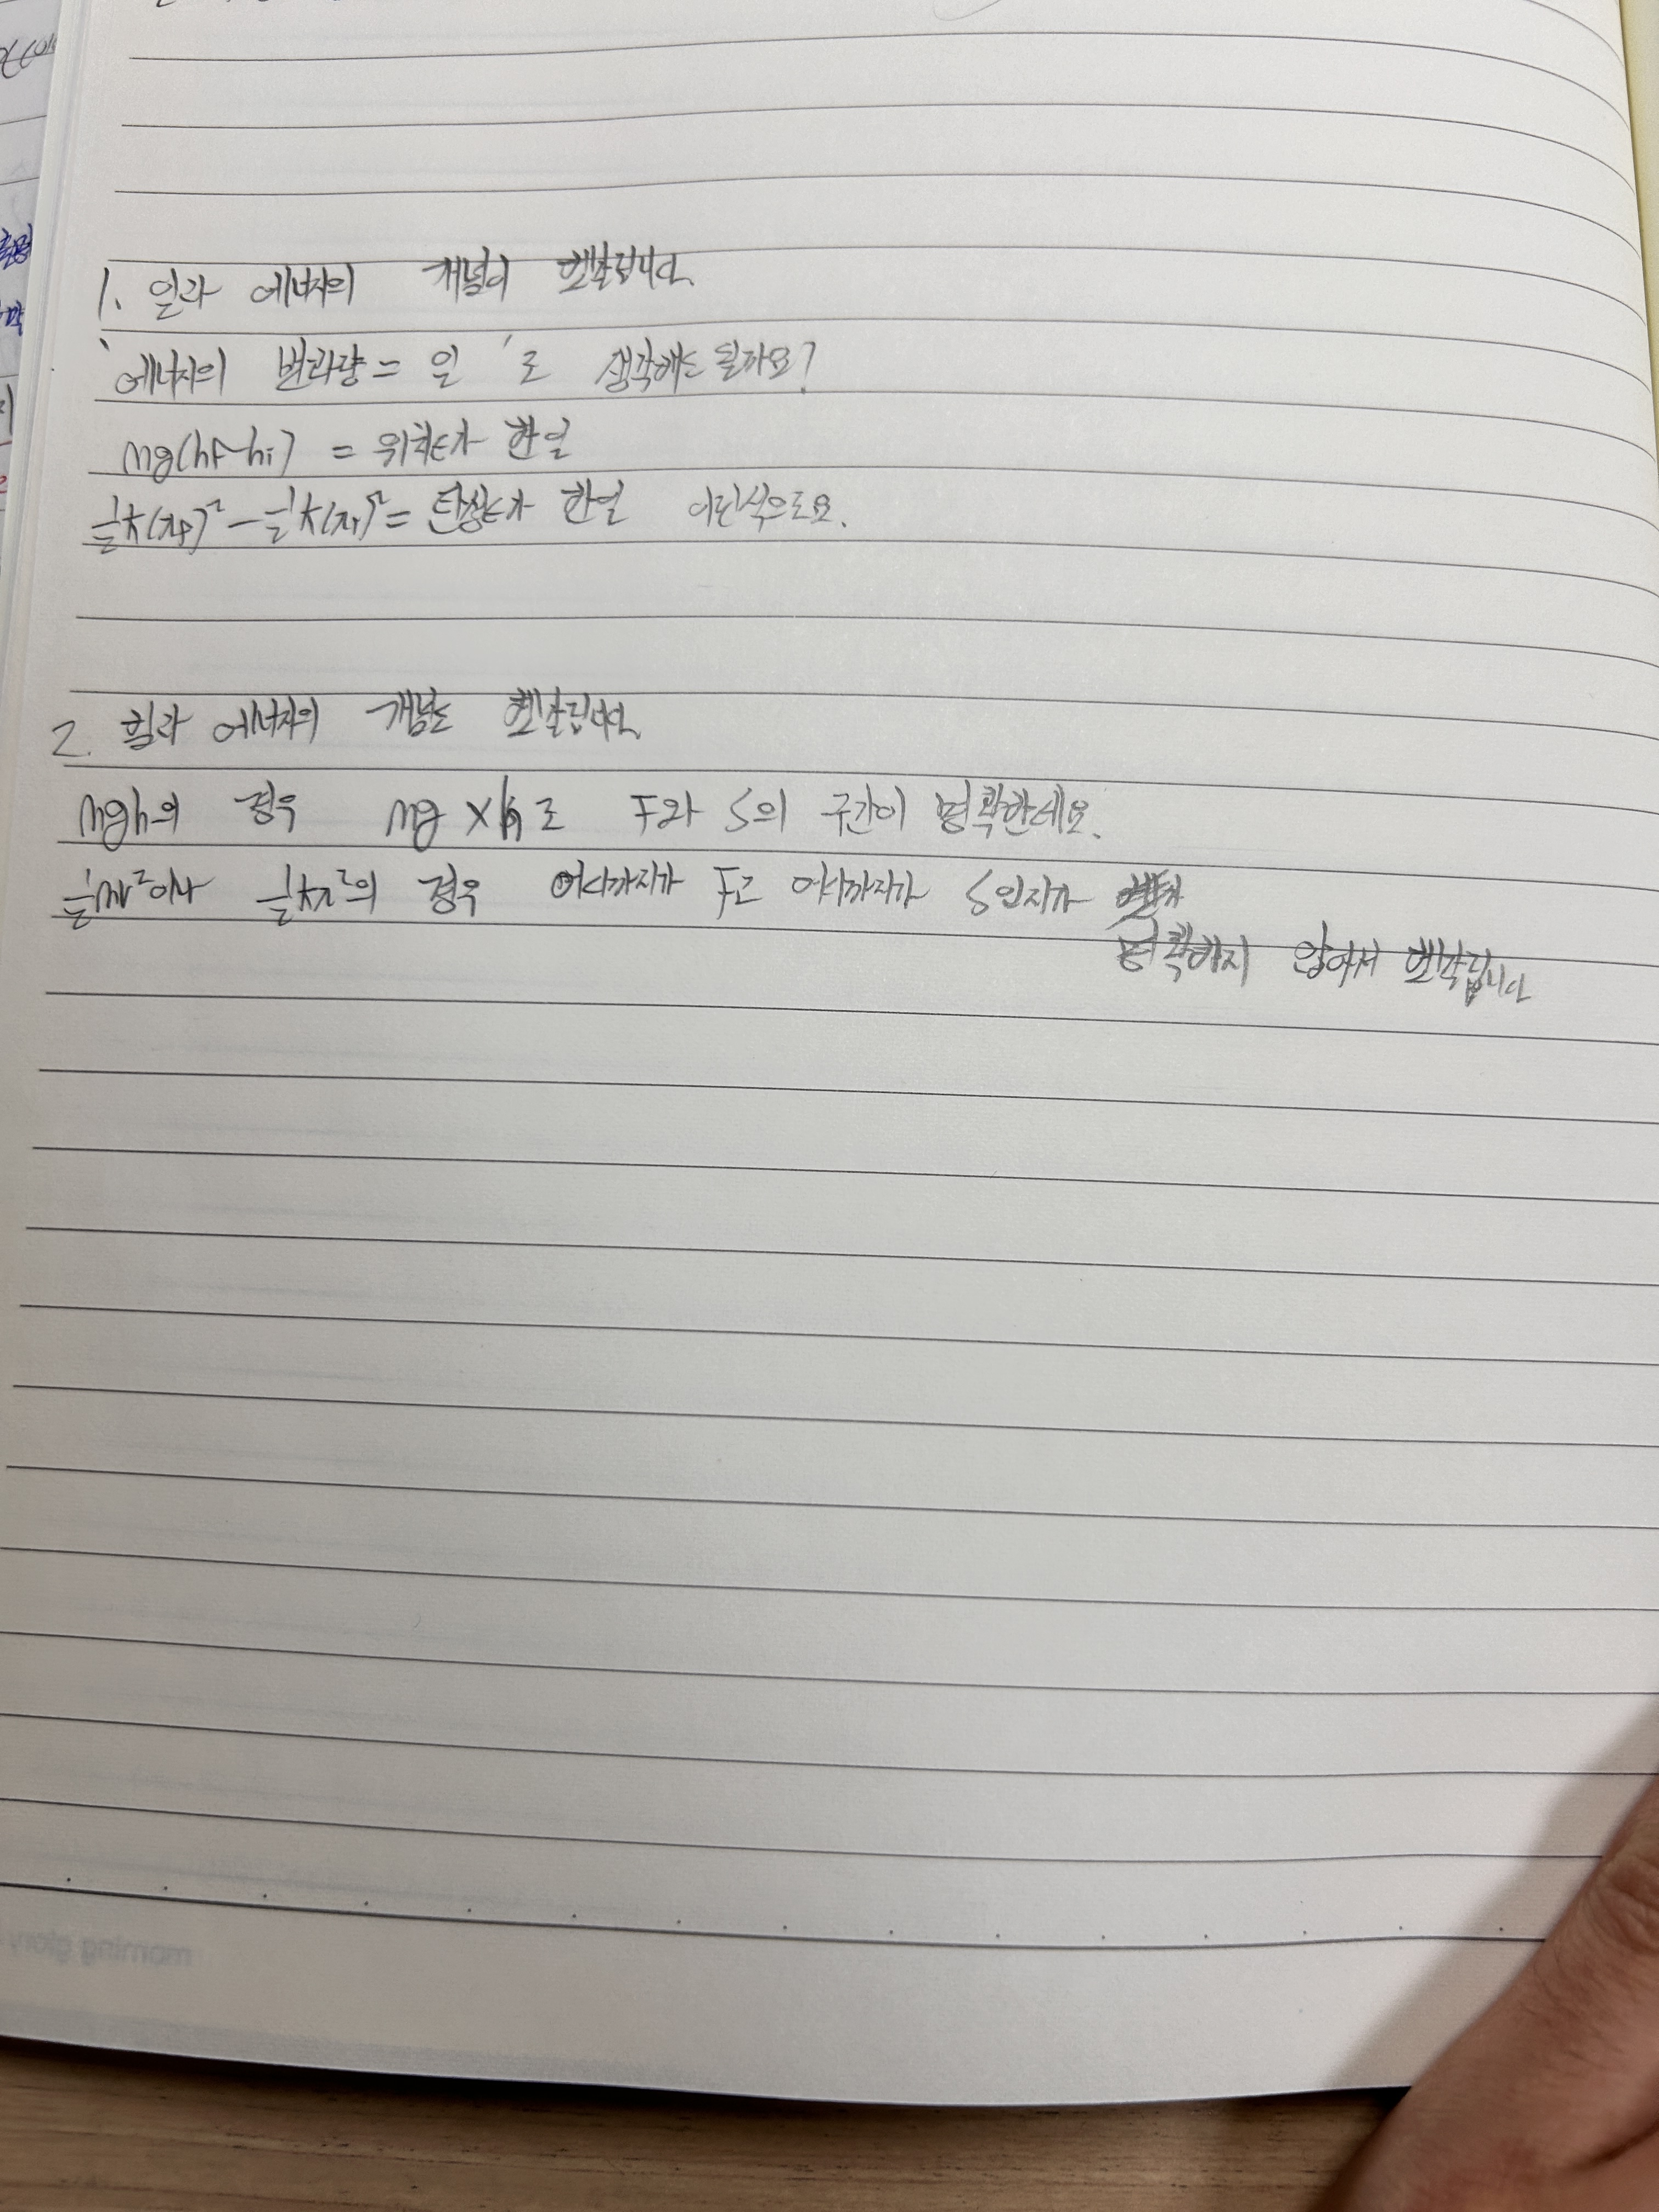 1. 일과 에너지의 개념이 헷갈립니다.
'에너지의 변화량 = 일'로 생각해도 될까요?
mg(hf-hi) = 위치E가 한일
½k(xf)² - ½k(xi)² = 탄성E가 한일 이런식으로요.
2. 힘과 에너지의 개념도 헷갈립니다.
mgh의 경우 mg × h로 F와 S의 구간이 명확한데요.
½mv²이나 ½kx²의 경우 어디까지가 F고 어디까지가 S인지가
명확하지 않아서 헷갈립니다
morning glory